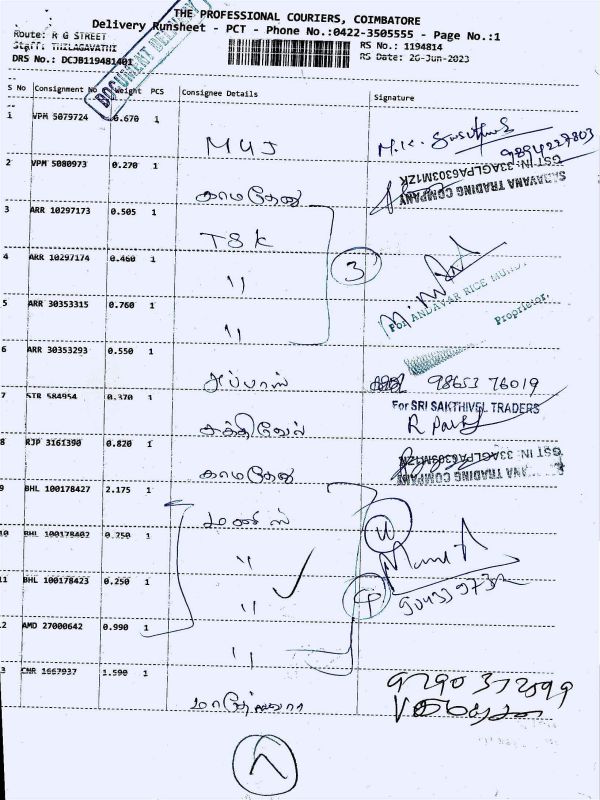 THE PROFESSIONAL COURIERS, COIMBATORE
Delivery Runsheet - PCT - Phone No.:0422-3505555 - Page No.:1
Route: R G STREET
RS No.: 1194814
Staff: THILAGAVATHI
RS Date: 26-Jun-2023
DRS No.: DCJB119481401
DOCUMENT DELIVERY
S No Consignment No Weight PCS Consignee Details Signature
1 VPM 5079724 0.670 1
M U J
9894227803
2 VPM 5080973 0.270 1
GST IN: 33AGLPA6303M1ZK
TRADING COMPANY
காமதேனு
3 ARR 10297173 0.505 1
T S K
4 ARR 10297174 0.460 1
3
"
For ANDAVAR RICE
Proprietor.
5 ARR 30353315 0.760 1
"
6 ARR 30353293 0.550 1
அப்பாஸ் 98653 76019
7 STR 584954 0.370 1
For SRI SAKTHIVEL TRADERS
சக்திவேல்
8 RJP 3161390 0.820 1
GST IN: 33AGLPA6303M1ZK
TRADING COMPANY
காமதேனு
9 BHL 100178427 2.175 1
10 BHL 100178402 0.750 1
"
11 BHL 100178423 0.250 1
"
12 AMD 27000642 0.990 1
"
13 CNR 1667937 1.590 1